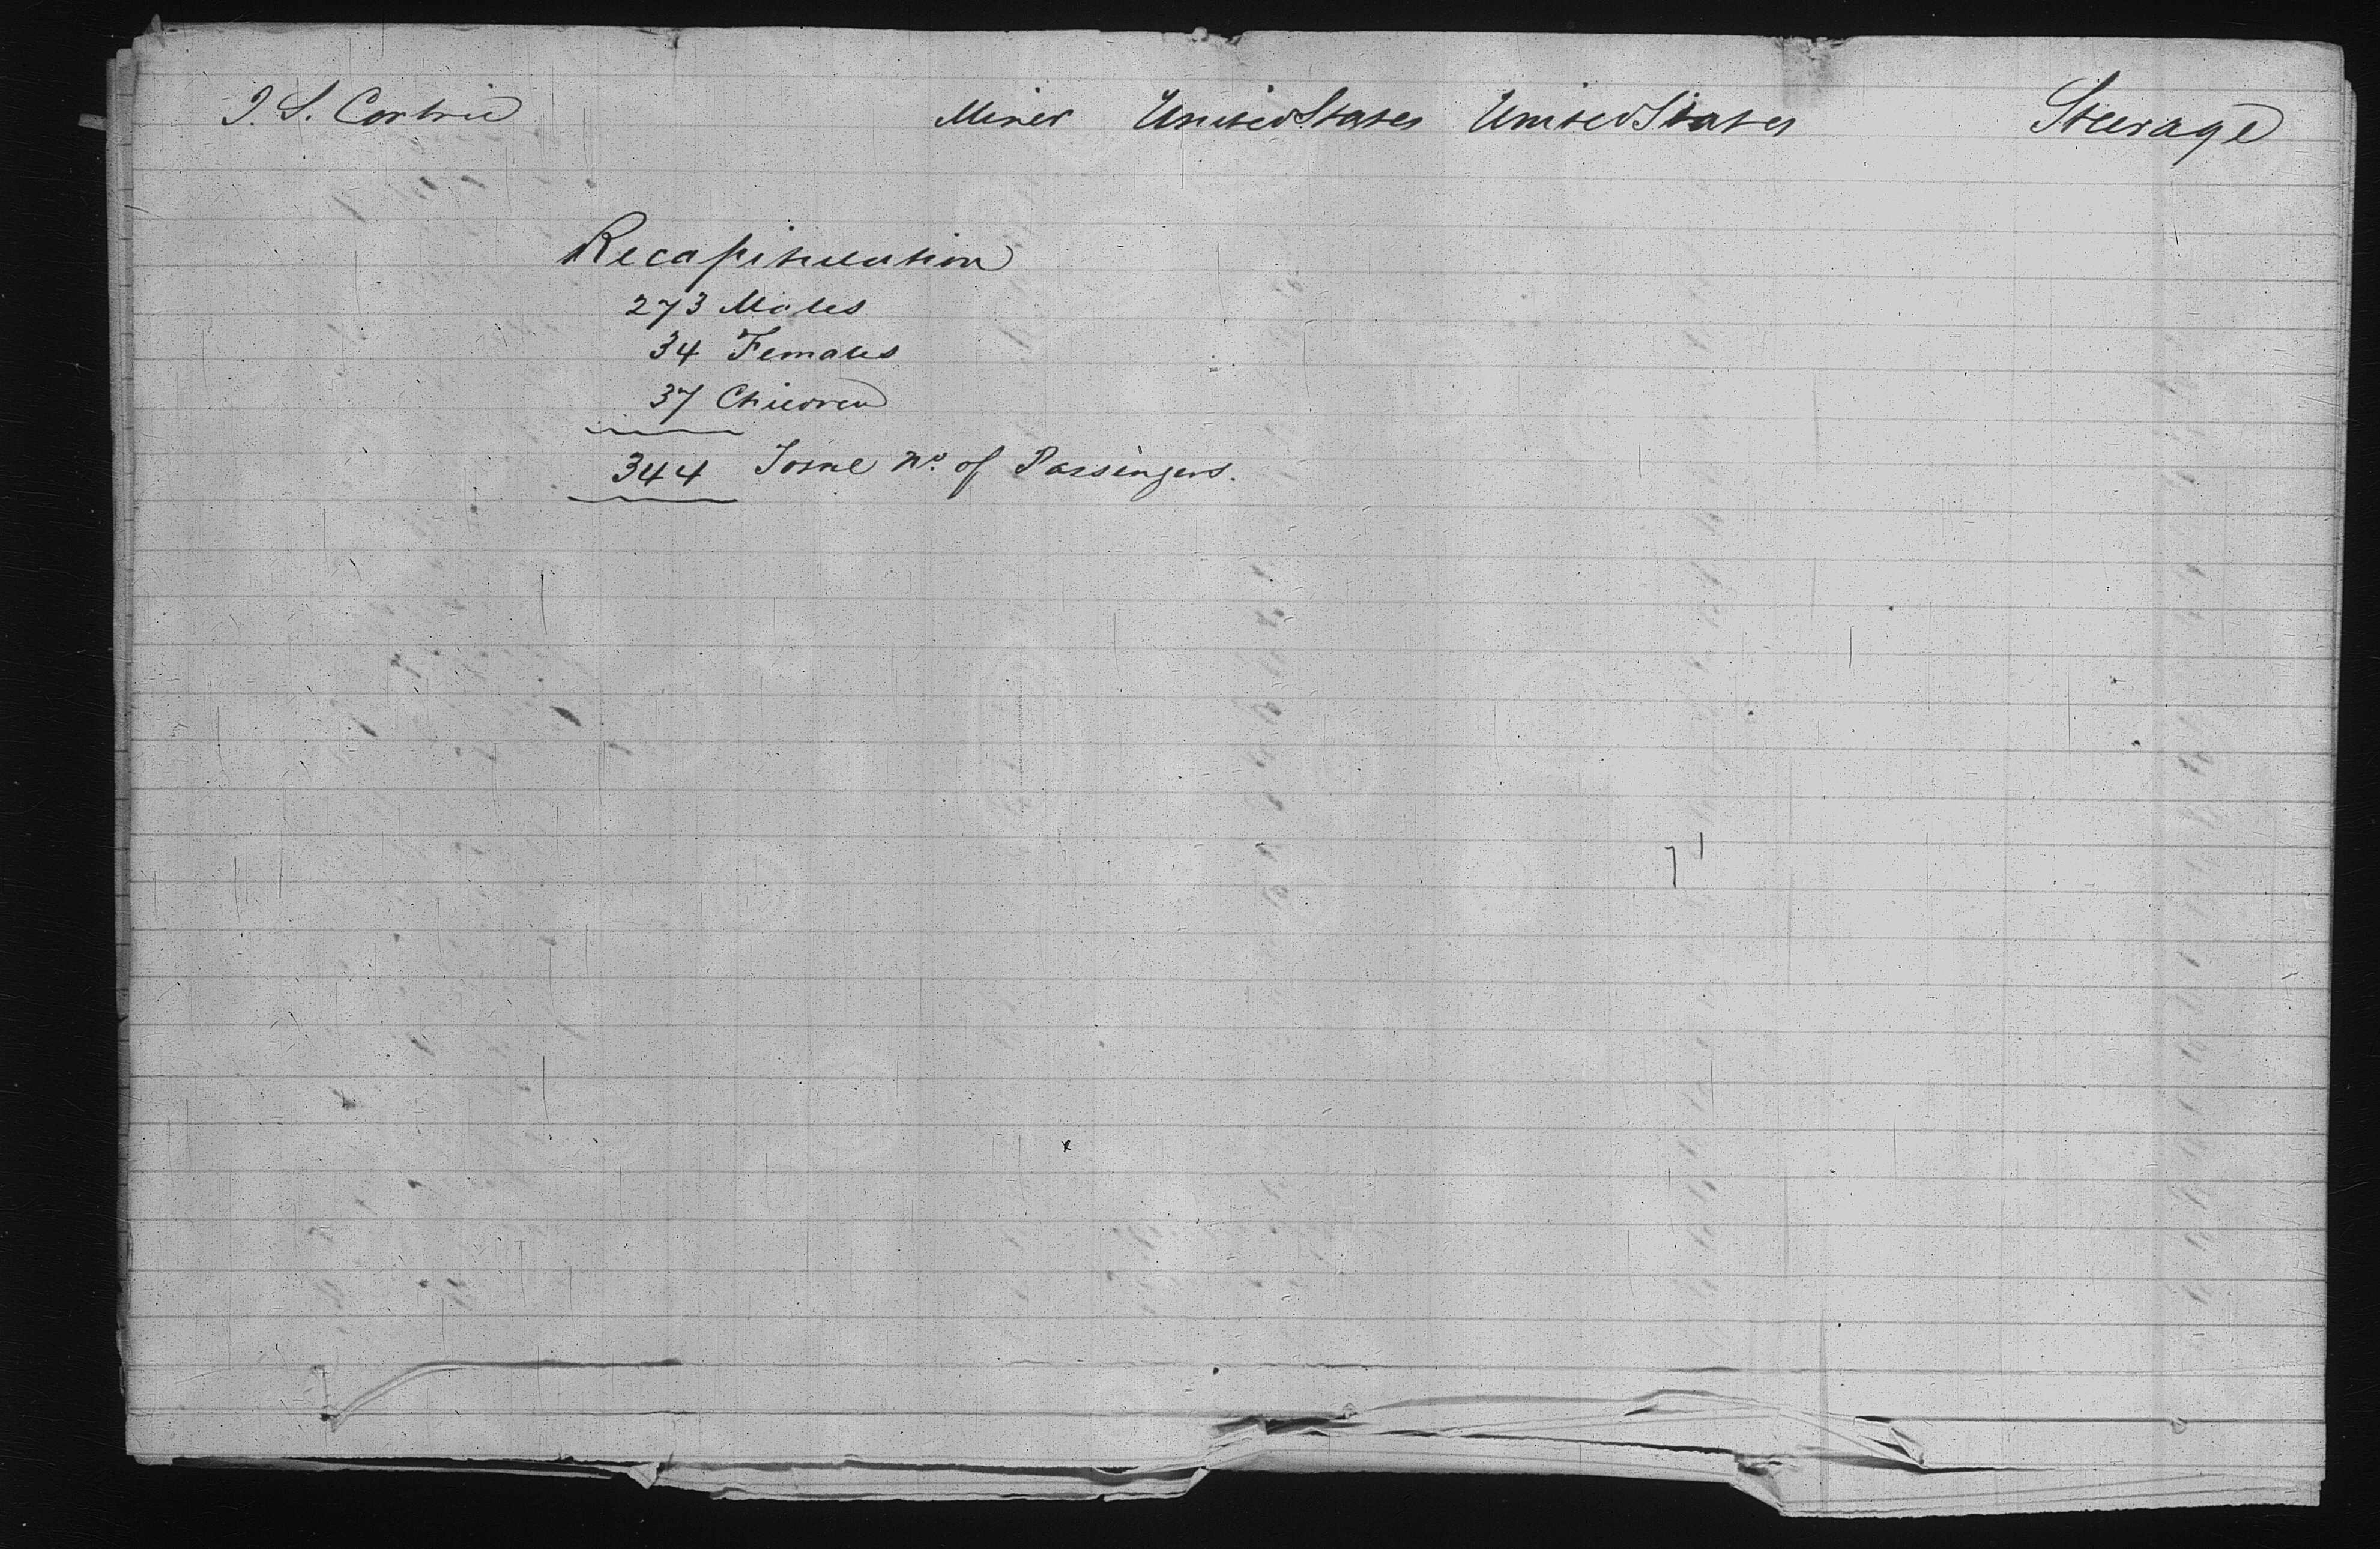 J. S. Miner United States United States Steerage
Recapitulation
273 Males
34 Females
37 Children
344 Total No. of Passengers.